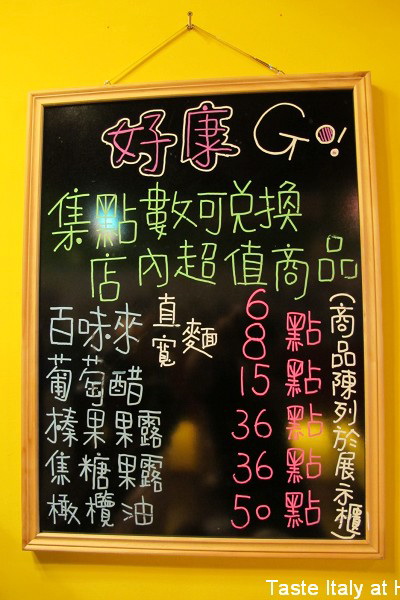 好康 Go!
集點數可兌換
店內超值商品
百味來 直麵 6點
寬麵 8點
葡萄醋 15點
榛果果露 36點
焦糖果露 36點
橄欖油 50點
(商品陳列於展示櫃)
Taste Italy at H